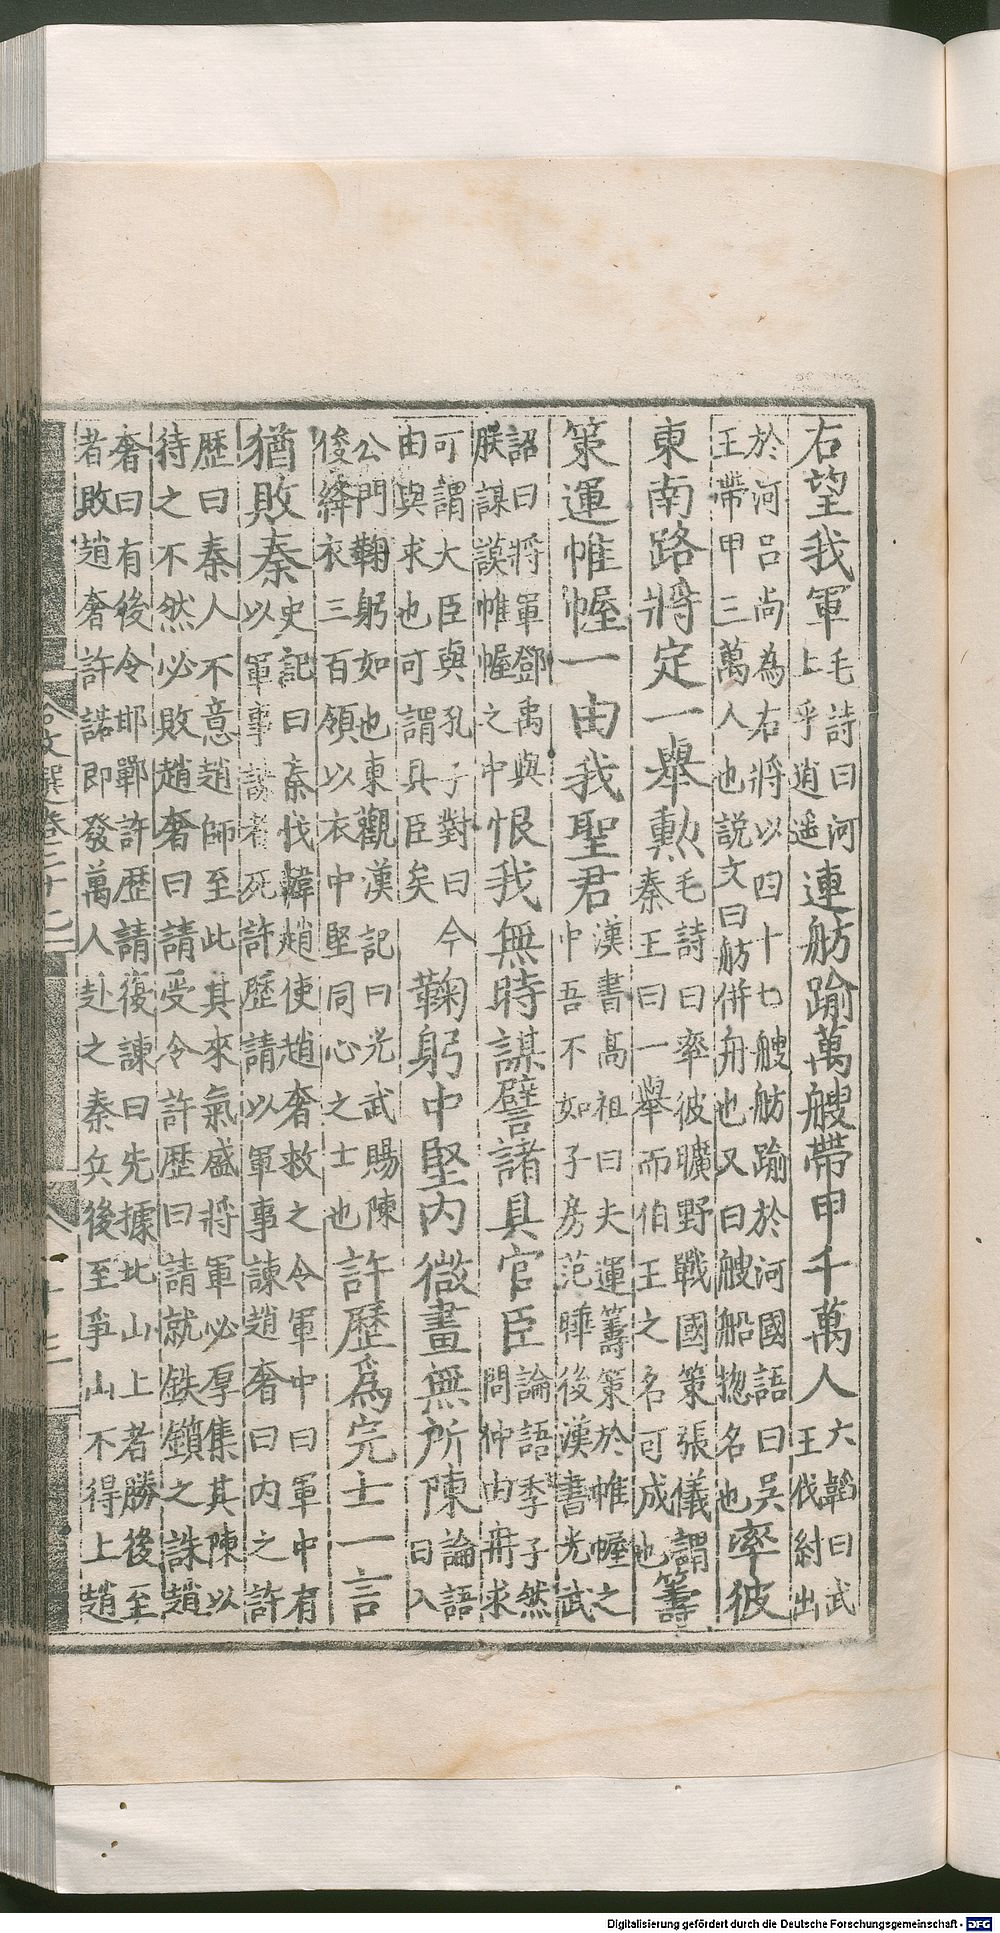 右望我軍毛詩曰河上乎逍遥連舫踰萬艘帶甲千萬人六韜曰武王伐紂出
於河呂尚為右將以四十七艘舫踰於河國語曰吳王帶甲三萬人也説文曰舫併舟也又曰艘船揔名也率彼
東南路將定一舉勲毛詩曰率彼曠野戰國策張儀謂秦王曰一舉而伯王之名可成也籌
策運帷幄一由我聖君漢書髙祖曰夫運籌策於帷幄之中吾不如子房范曄後漢書光武
詔曰將軍鄧禹與朕謀謨帷幄之中恨我無時謀譬諸具官臣論語季子然問仲由冉求
可謂大臣與孔子對曰今由與求也可謂具臣矣鞠躬中堅内微畫無所陳論語曰入
公門鞠躬如也東觀漢記曰光武賜陳俊絳衣三百領以衣中堅同心之士也許歷爲完士一言
猶敗秦史記曰秦伐韓趙使趙奢救之令軍中曰軍中有以軍事諫者死許歷請以軍事諫趙奢曰内之許
歷曰秦人不意趙師至此其來氣盛將軍必厚集其陳以待之不然必敗趙奢曰請受令許歷曰請就鈇鑕之誅趙
奢曰有後令邯鄲許歷請復諫曰先據北山上者勝後至者敗趙奢許諾即發萬人赴之秦兵後至爭山不得上趙
文選卷二十七
Digitalisierung gefördert durch die Deutsche Forschungsgemeinschaft - DFG